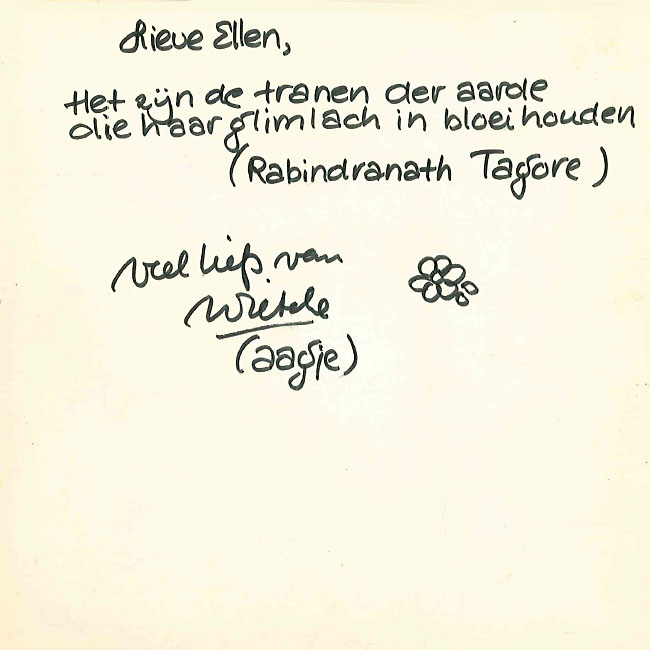 Lieve Ellen,
Het zijn de tranen der aarde
die haar glimlach in bloei houden
(Rabindranath Tagore)
veel liefs van
Wietske
(aagje)